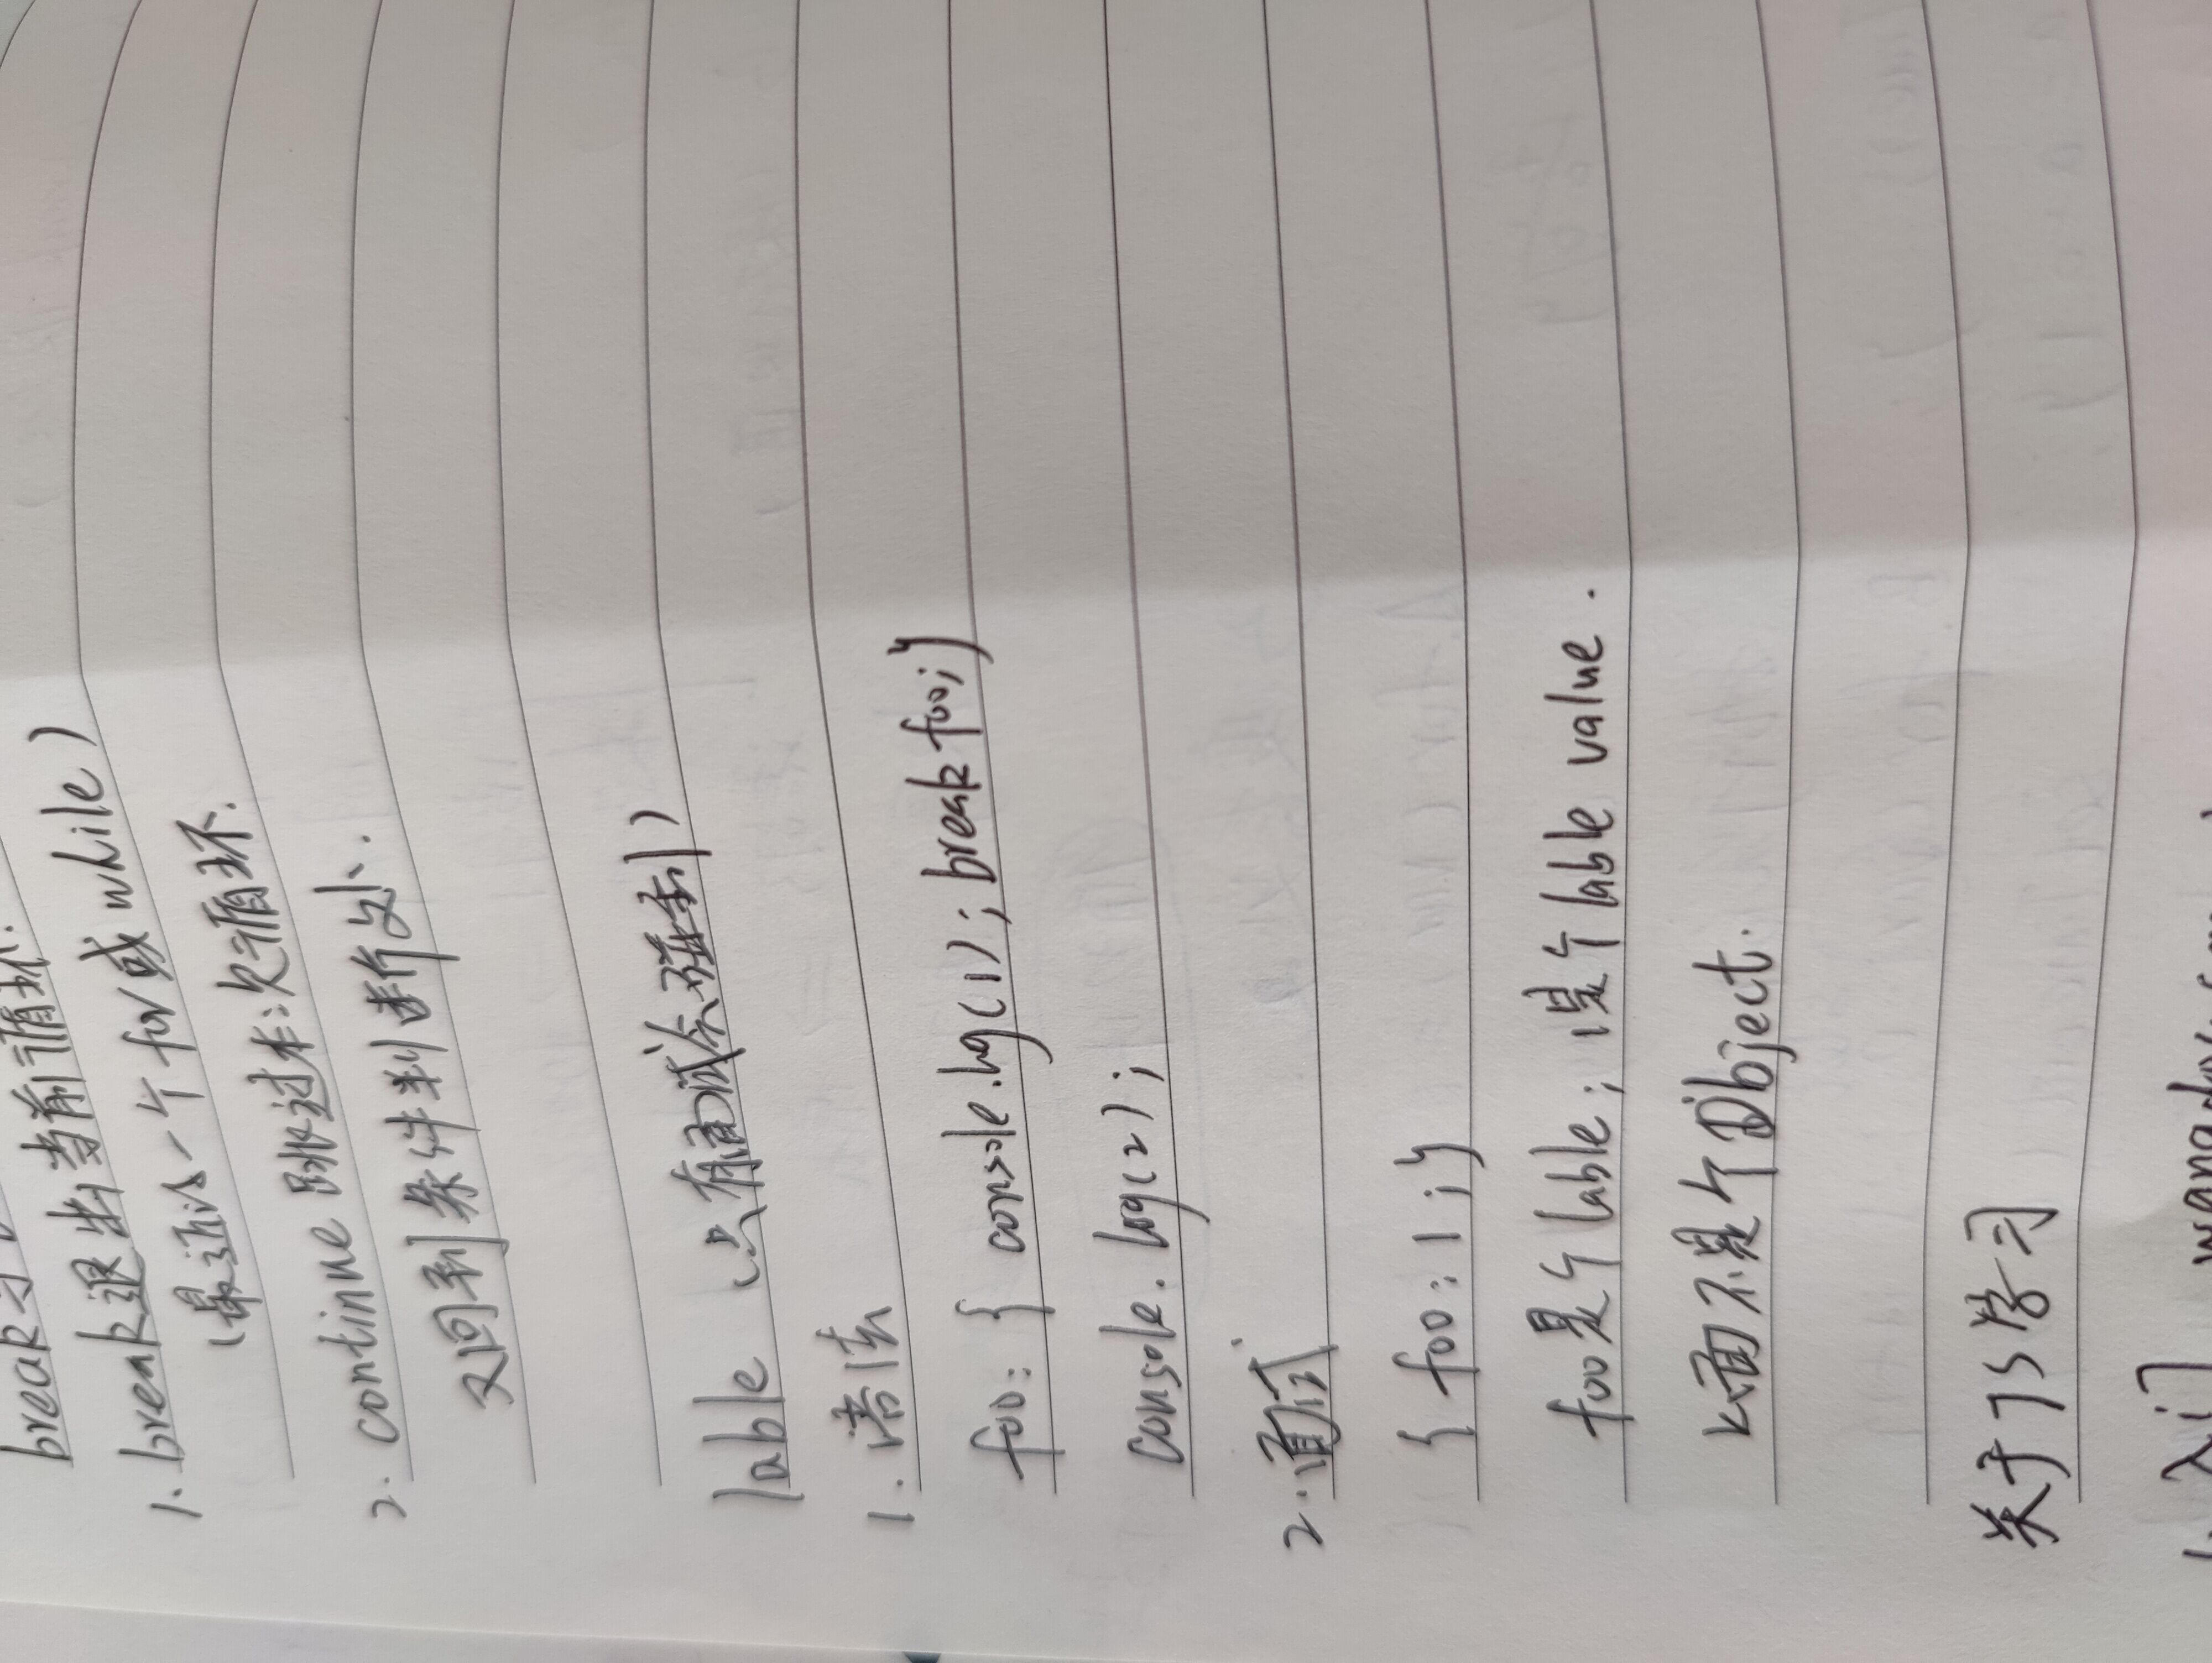 break
1. break退出当前循环.
(最近的一个for或while)
2. continue 跳过本次循环.
又回到条件判断处.
lable (只有面试会碰到)
1. 语法
foo: { console.log(1); break foo;}
console.log(2);
2. 面试
{ foo: 1; }
foo是个lable; 1是个lable value.
上面不是个Object.
关于JS学习
1. 入门